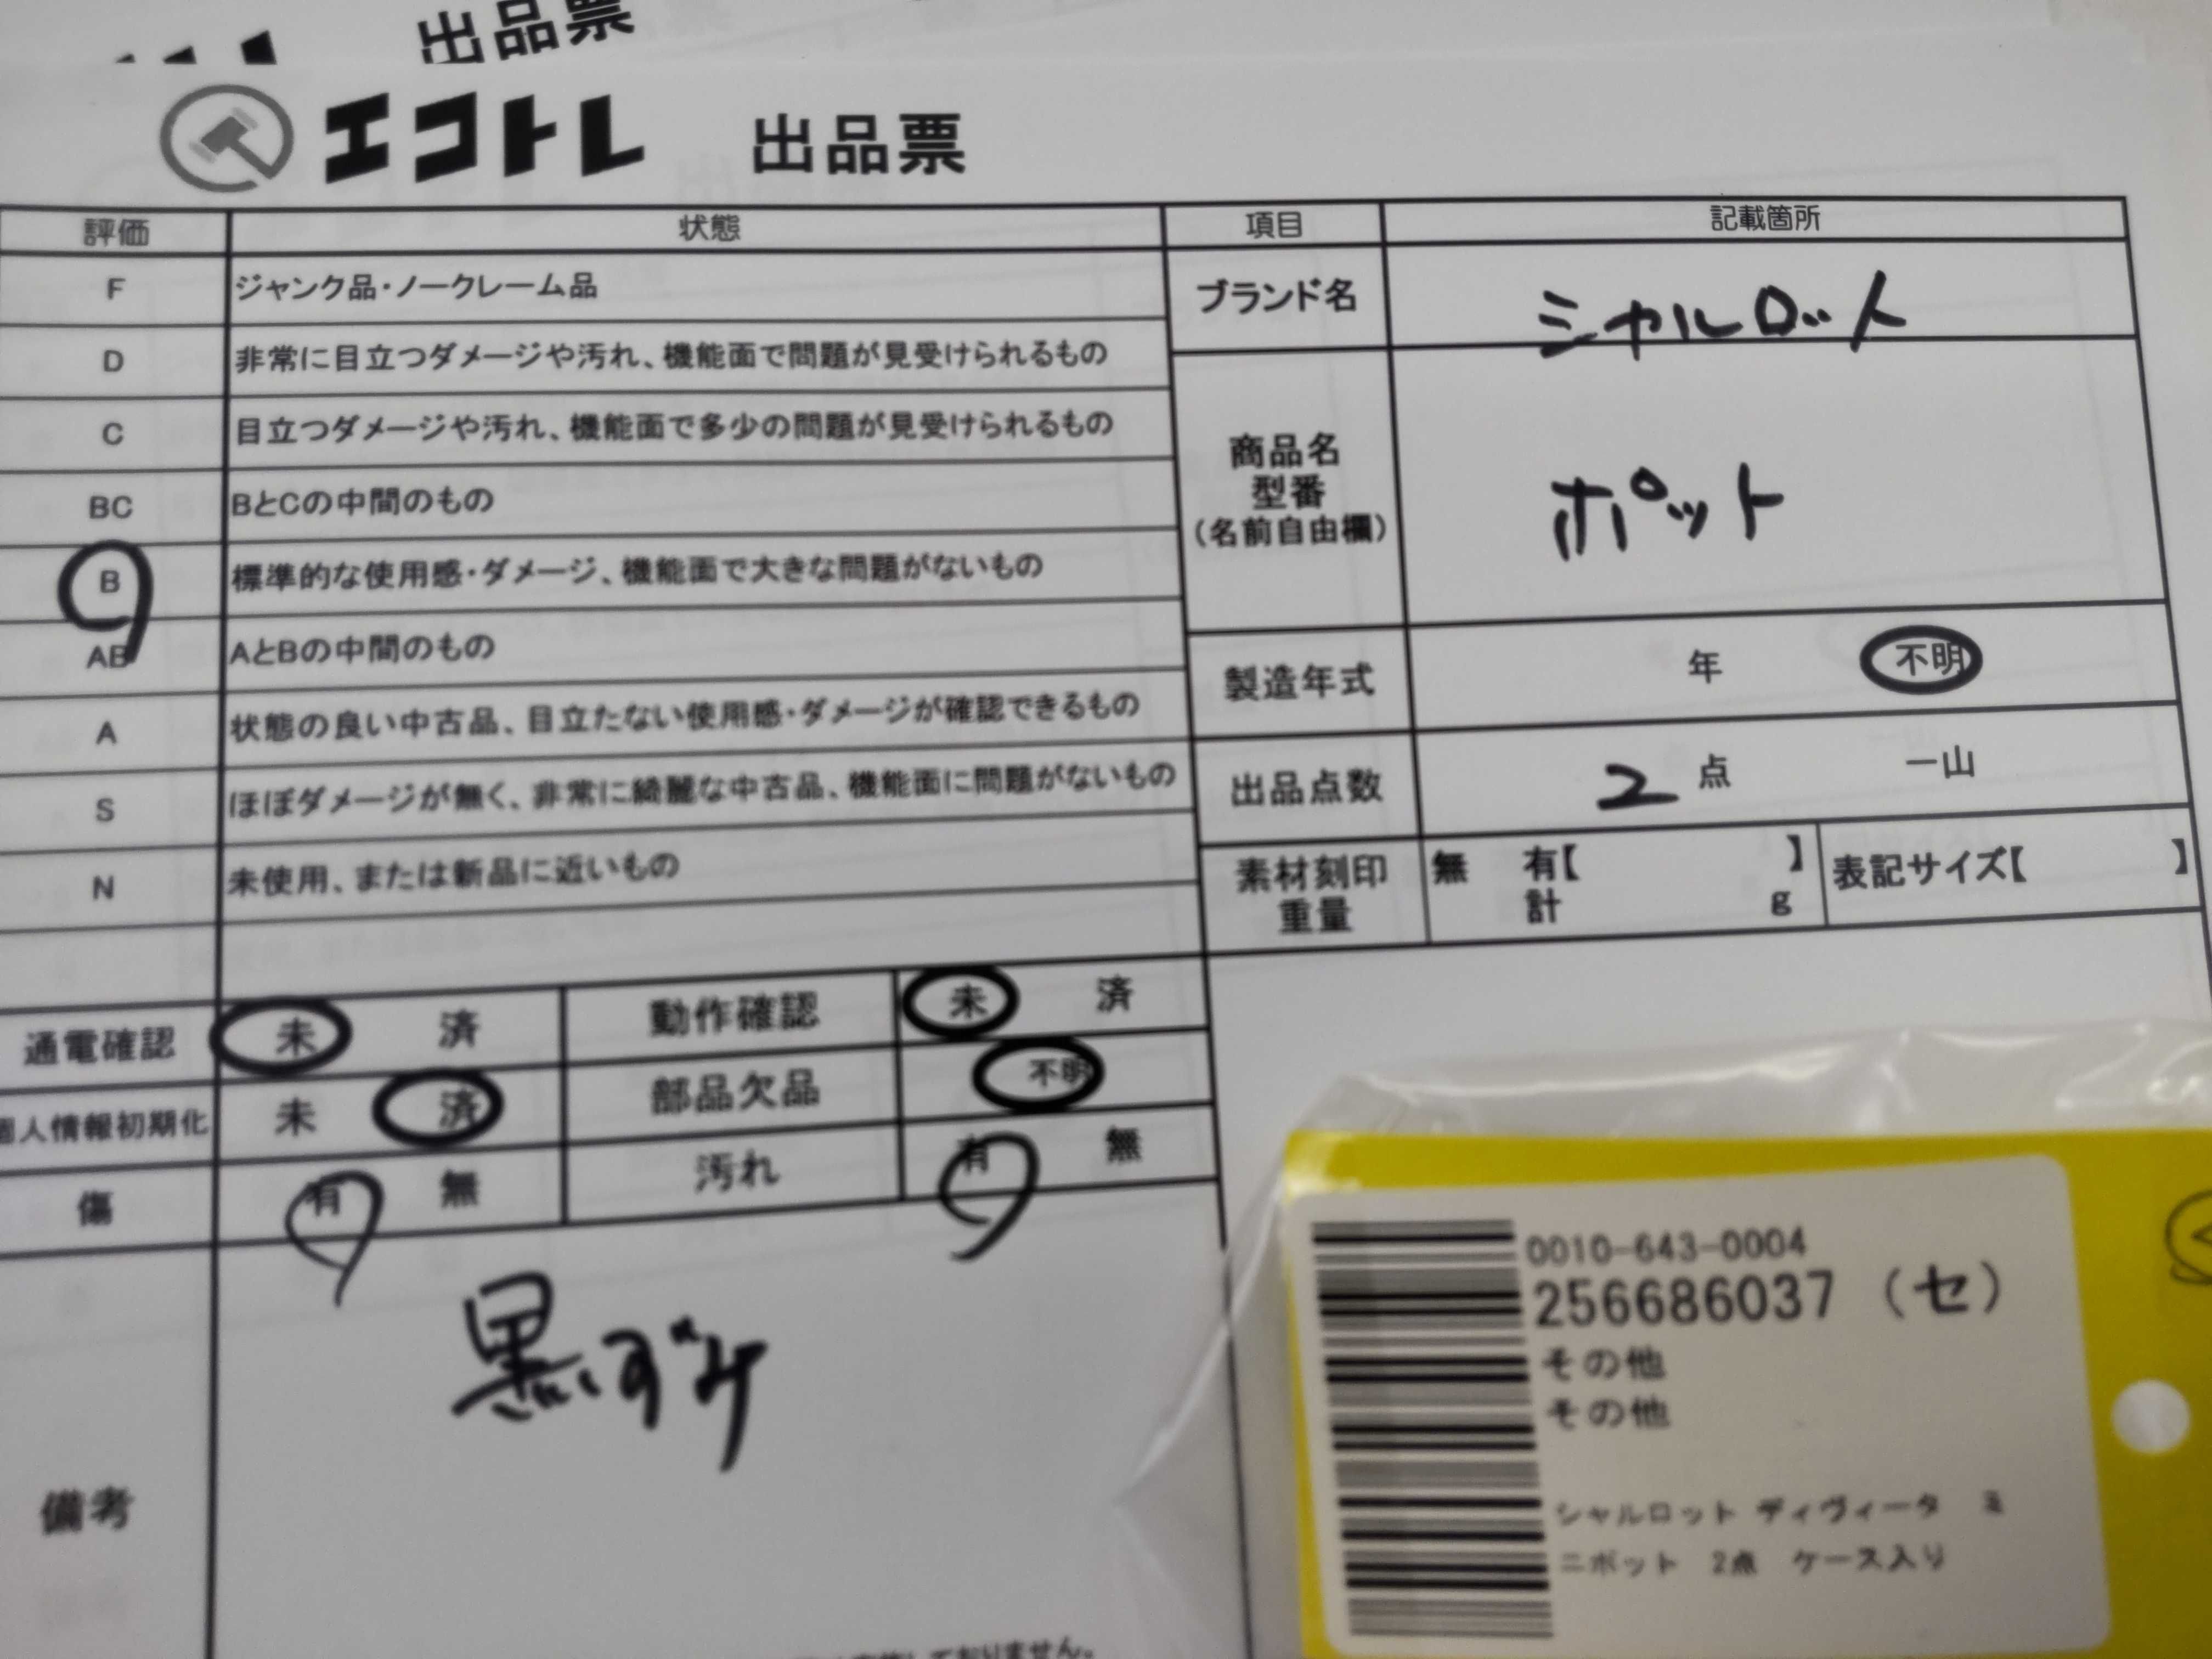 出品票
エコトレ 出品票
評価 状態 項目 記載箇所
F ジャンク品・ノークレーム品
D 非常に目立つダメージや汚れ、機能面で問題が見受けられるもの
C 目立つダメージや汚れ、機能面で多少の問題が見受けられるもの
BC BとCの中間のもの
B 標準的な使用感・ダメージ、機能面で大きな問題がないもの
AB AとBの中間のもの
A 状態の良い中古品、目立たない使用感・ダメージが確認できるもの
S ほぼダメージが無く、非常に綺麗な中古品、機能面に問題がないもの
N 未使用、または新品に近いもの
ブランド名 シャルロット
商品名
型番
(名前自由欄)
ポット
製造年式 年 不明
出品点数 2 点 一山
素材刻印 無 有【 】 表記サイズ【 】
重量 計 g
通電確認 未 済 動作確認 未 済
個人情報初期化 未 済 部品欠品 不明
傷 有 無 汚れ 有 無
備考
黒ずみ
ておりません。
0010-643-0004
256686037 (セ)
その他
その他
シャルロット ディヴィータ ミ
ニポット 2点 ケース入り